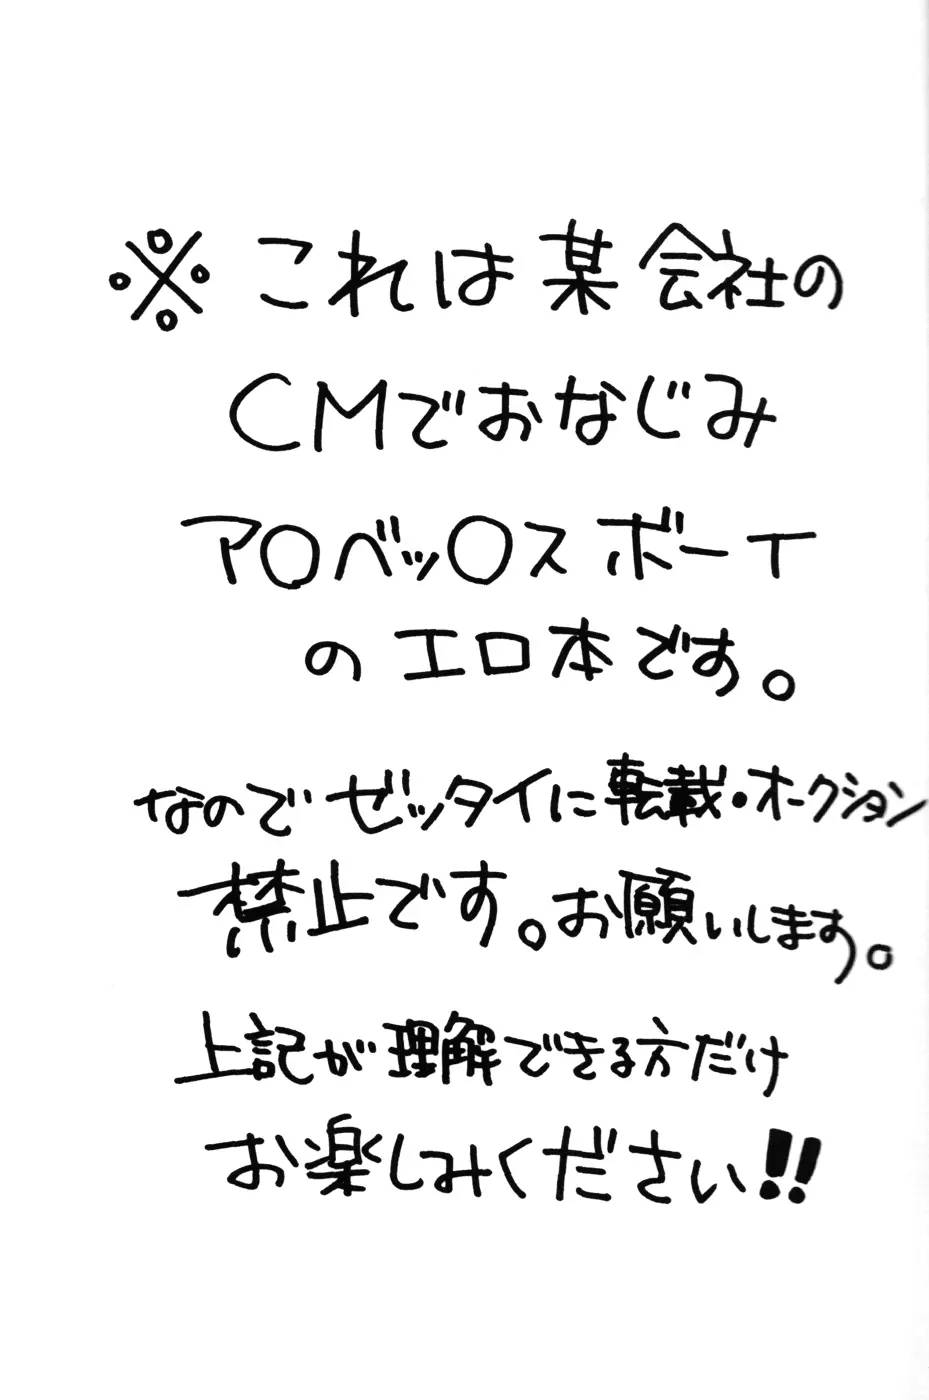 ※これは某会社の
CMでおなじみ
ア○ベッ○スボーイ
のエロ本です。
なのでゼッタイに転載・オークション
禁止です。お願いします。
上記が理解できる方だけ
お楽しみください!!